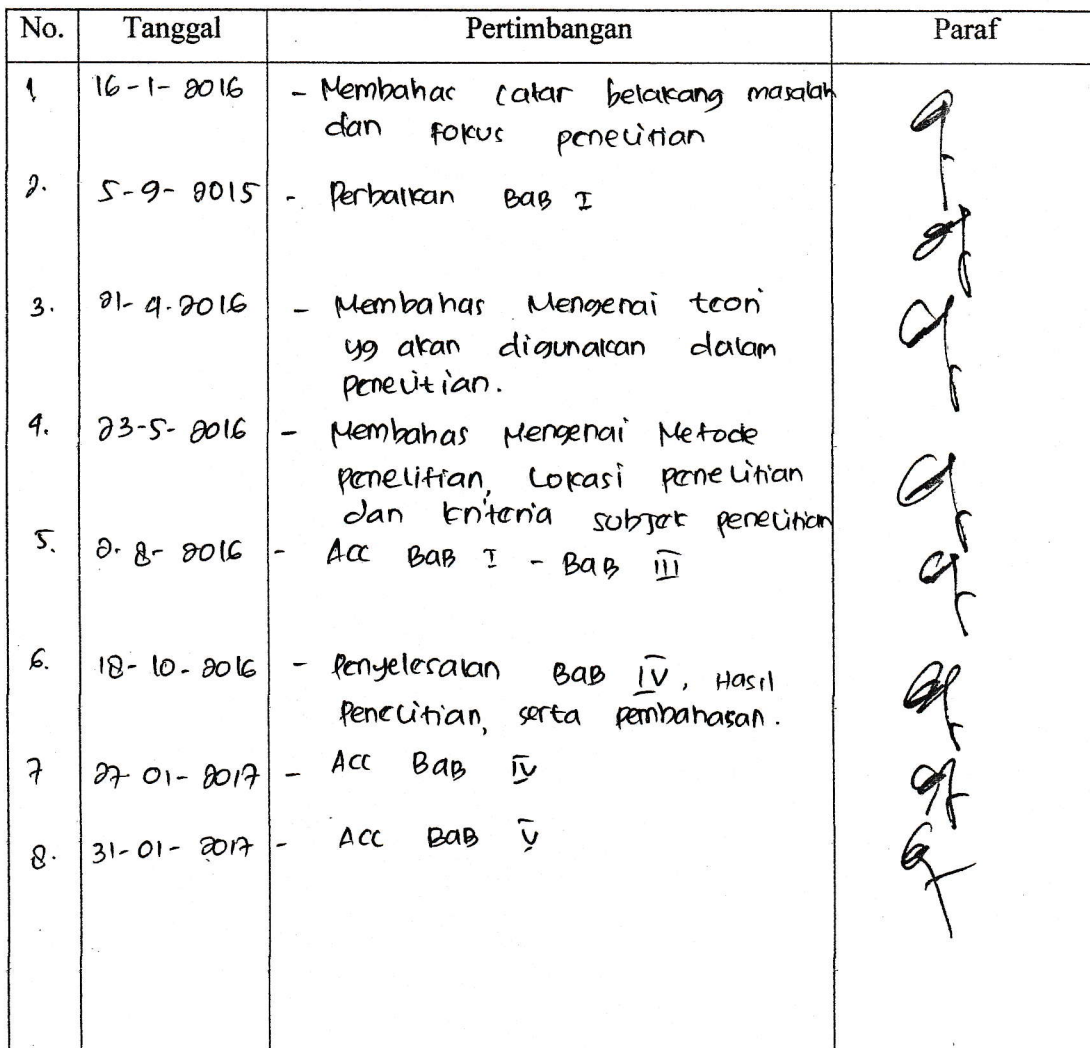 No. Tanggal Pertimbangan Paraf
1 16-1-2016 - Membahas Latar belakang masalah
dan Fokus penelitian
2. 5-9-2015 - Perbaikan BAB I
3. 21-4-2016 - Membahas Mengenai teori
yg akan digunakan dalam
penelitian.
4. 23-5-2016 - Membahas Mengenai Metode
penelitian, Lokasi penelitian
dan kriteria subjek penelitian
5. 2-8-2016 - Acc BAB I - BAB III
6. 18-10-2016 - Penyelesaian BAB IV, Hasil
Penelitian, serta pembahasan.
7 27-01-2017 - Acc BAB IV
8. 31-01-2017 - Acc BAB V